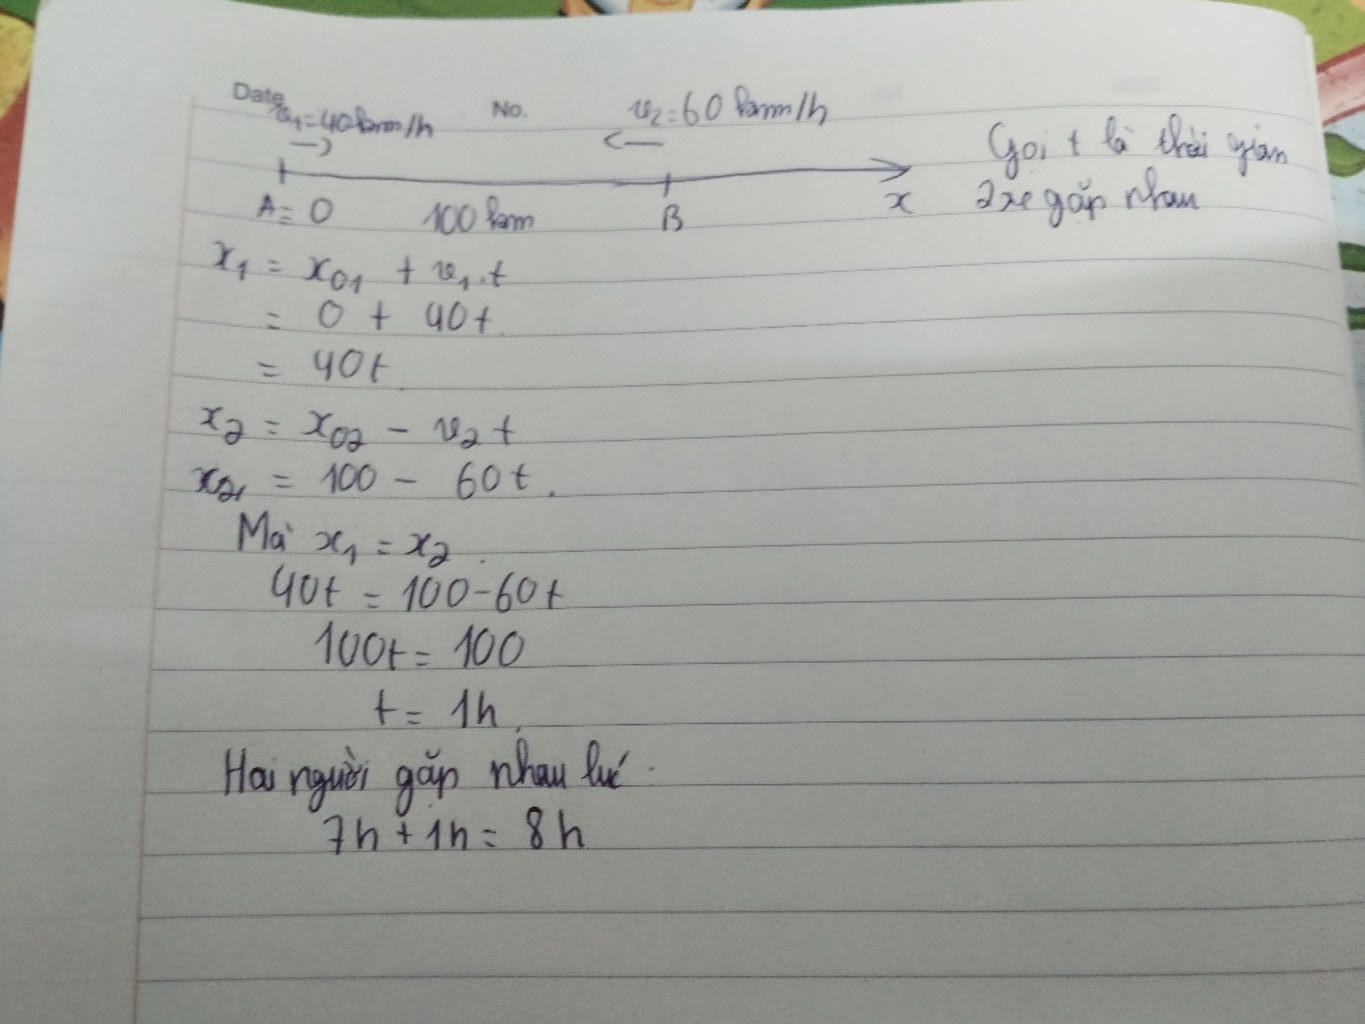 Date
No.
v₁=40km/h
v₂=60km/h
A≡0 100km B x
Gọi t là thời gian
2 xe gặp nhau
x₁ = x₀₁ + v₁.t
= 0 + 40t
= 40t
x₂ = x₀₂ - v₂t
x₂ = 100 - 60t.
Mà x₁ = x₂.
40t = 100-60t
100t = 100
t = 1h
Hai người gặp nhau lúc
7h + 1h = 8h